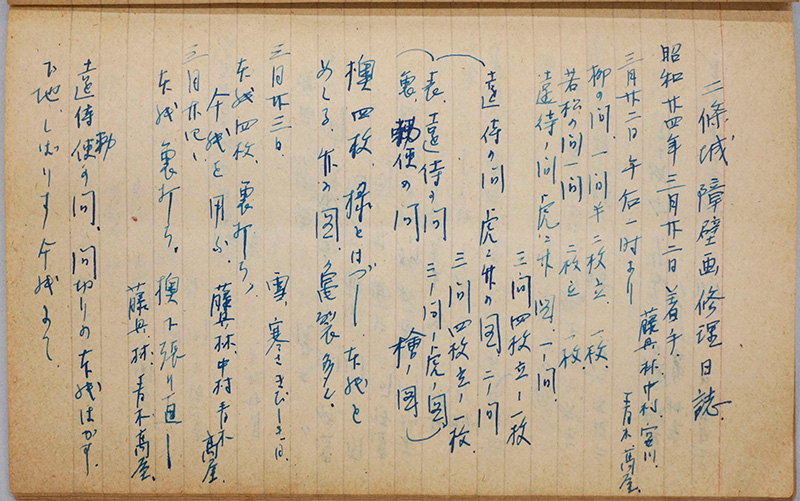 二條城障壁画修理日誌
昭和廿四年三月廿二日着手、
藤井、林、中村、宮川、
三月廿二日午后一時より 青木髙屋、
柳の間、一間半二枚立、一枚、
若松の間一間 二枚立 一枚、
遠侍ノ間、虎ニ竹ノ図、一ノ間、
三間四枚立ノ一枚
遠侍の間、虎ニ竹の図、二ノ間
三間四枚立ノ一枚、
表、遠侍の間 三ノ間ノ虎ノ図
裏、勅使の間 檜ノ図
襖四枚、椽とはづし本紙を
めくる、竹の図、亀裂多し、
三月廿三日、 雪、寒さきびしき日、
本紙四枚、裏打ち、
今紙を用ふ、藤井、林、中村、青木、髙屋、
三月廿四日、
本紙裏打ち、襖下張り直し
藤井、林、青木、髙屋、
遠侍勅使の間、間切りの本紙はがす、
下地、しぶりす今紙よし、